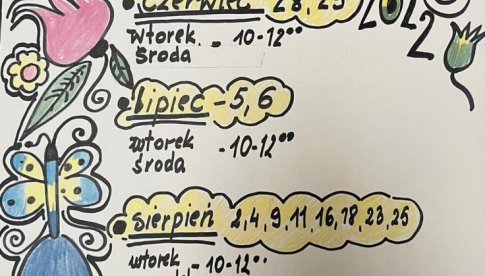 Czerwiec 28, 29 2022
wtorek - 10-12⁰⁰
środa
lipiec - 5, 6
wtorek - 10-12⁰⁰
środa
sierpień 2, 4, 9, 11, 16, 18, 23, 25
wtorek - 10-12⁰⁰